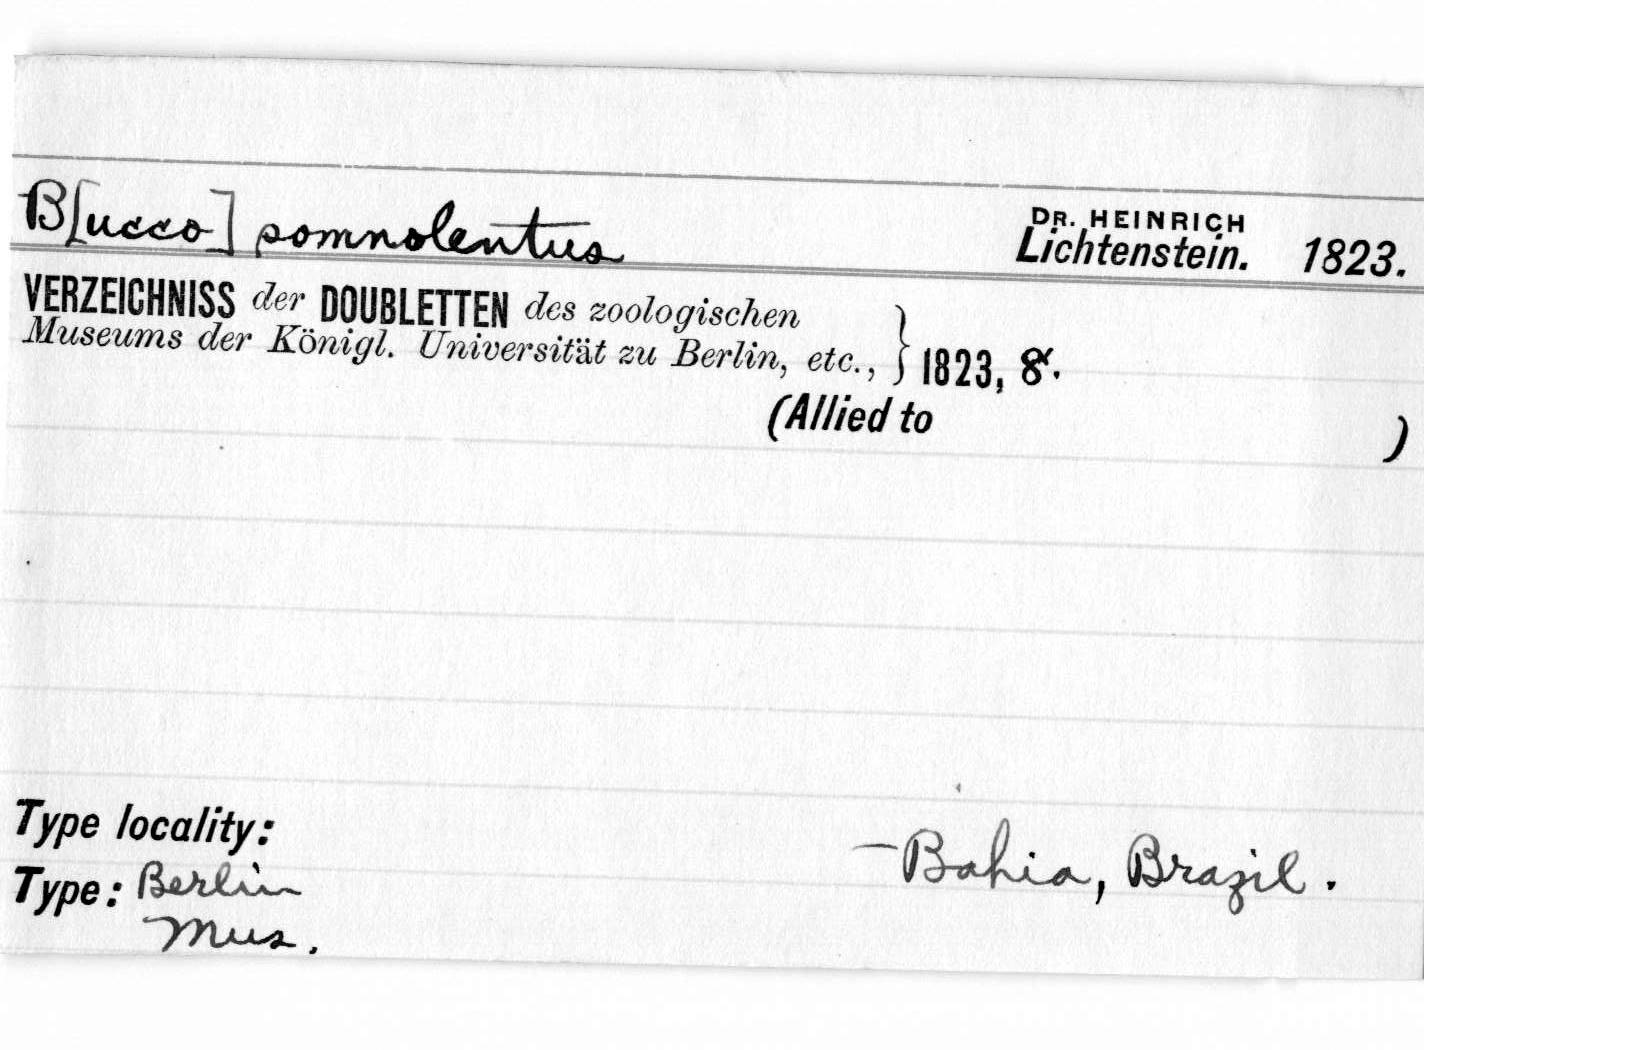 B[ucco] somnolentus
DR. HEINRICH
Lichtenstein. 1823.
VERZEICHNISS der DOUBLETTEN des zoologischen
Museums der Königl. Universität zu Berlin, etc., } 1823, 8.
(Allied to )
Type locality:
—Bahia, Brazil.
Type: Berlin
Mus.